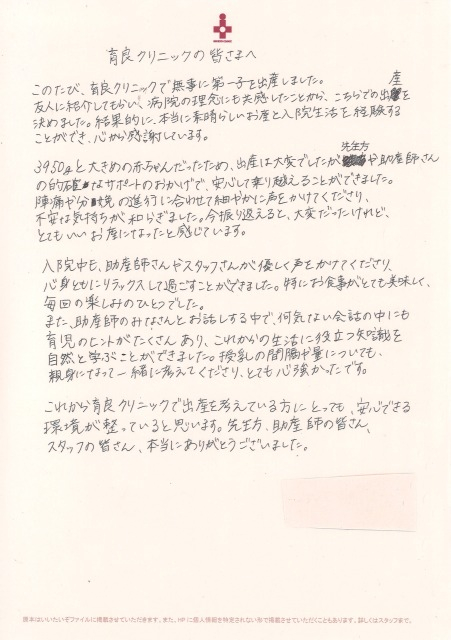 育良クリニックの皆さまへ
このたび、育良クリニックで無事に第一子を出産しました。
友人に紹介してもらい、病院の理念にも共感したことから、こちらでの出産を
決めました。結果的に、本当に素晴らしいお産と入院生活を経験する
ことができ、心から感謝しています。
3950gと大きめの赤ちゃんだったため、出産は大変でしたが先生方や助産師さん
の的確なサポートのおかげで、安心して乗り越えることができました。
陣痛や分娩の進行に合わせて細やかに声をかけてくださり、
不安な気持ちが和らぎました。今振り返ると、大変だったけれど、
とてもいいお産になったと感じています。
入院中も、助産師さんやスタッフさんが優しく声をかけてくださり、
心身ともにリラックスして過ごすことができました。特にお食事がとても美味しく、
毎回の楽しみのひとつでした。
また、助産師のみなさんとお話しする中で、何気ない会話の中にも
育児のヒントがたくさんあり、これからの生活に役立つ知識を
自然と学ぶことができました。授乳の間隔や量についても、
親身になって一緒に考えてくださり、とても心強かったです。
これから育良クリニックで出産を考えている方にとっても、安心できる
環境が整っていると思います。先生方、助産師の皆さん、
スタッフの皆さん、本当にありがとうございました。
原本はいいたいぞファイルに掲載させていただきます。また、HPに個人情報を特定されない形で掲載させていただくこともあります。詳しくはスタッフまで。